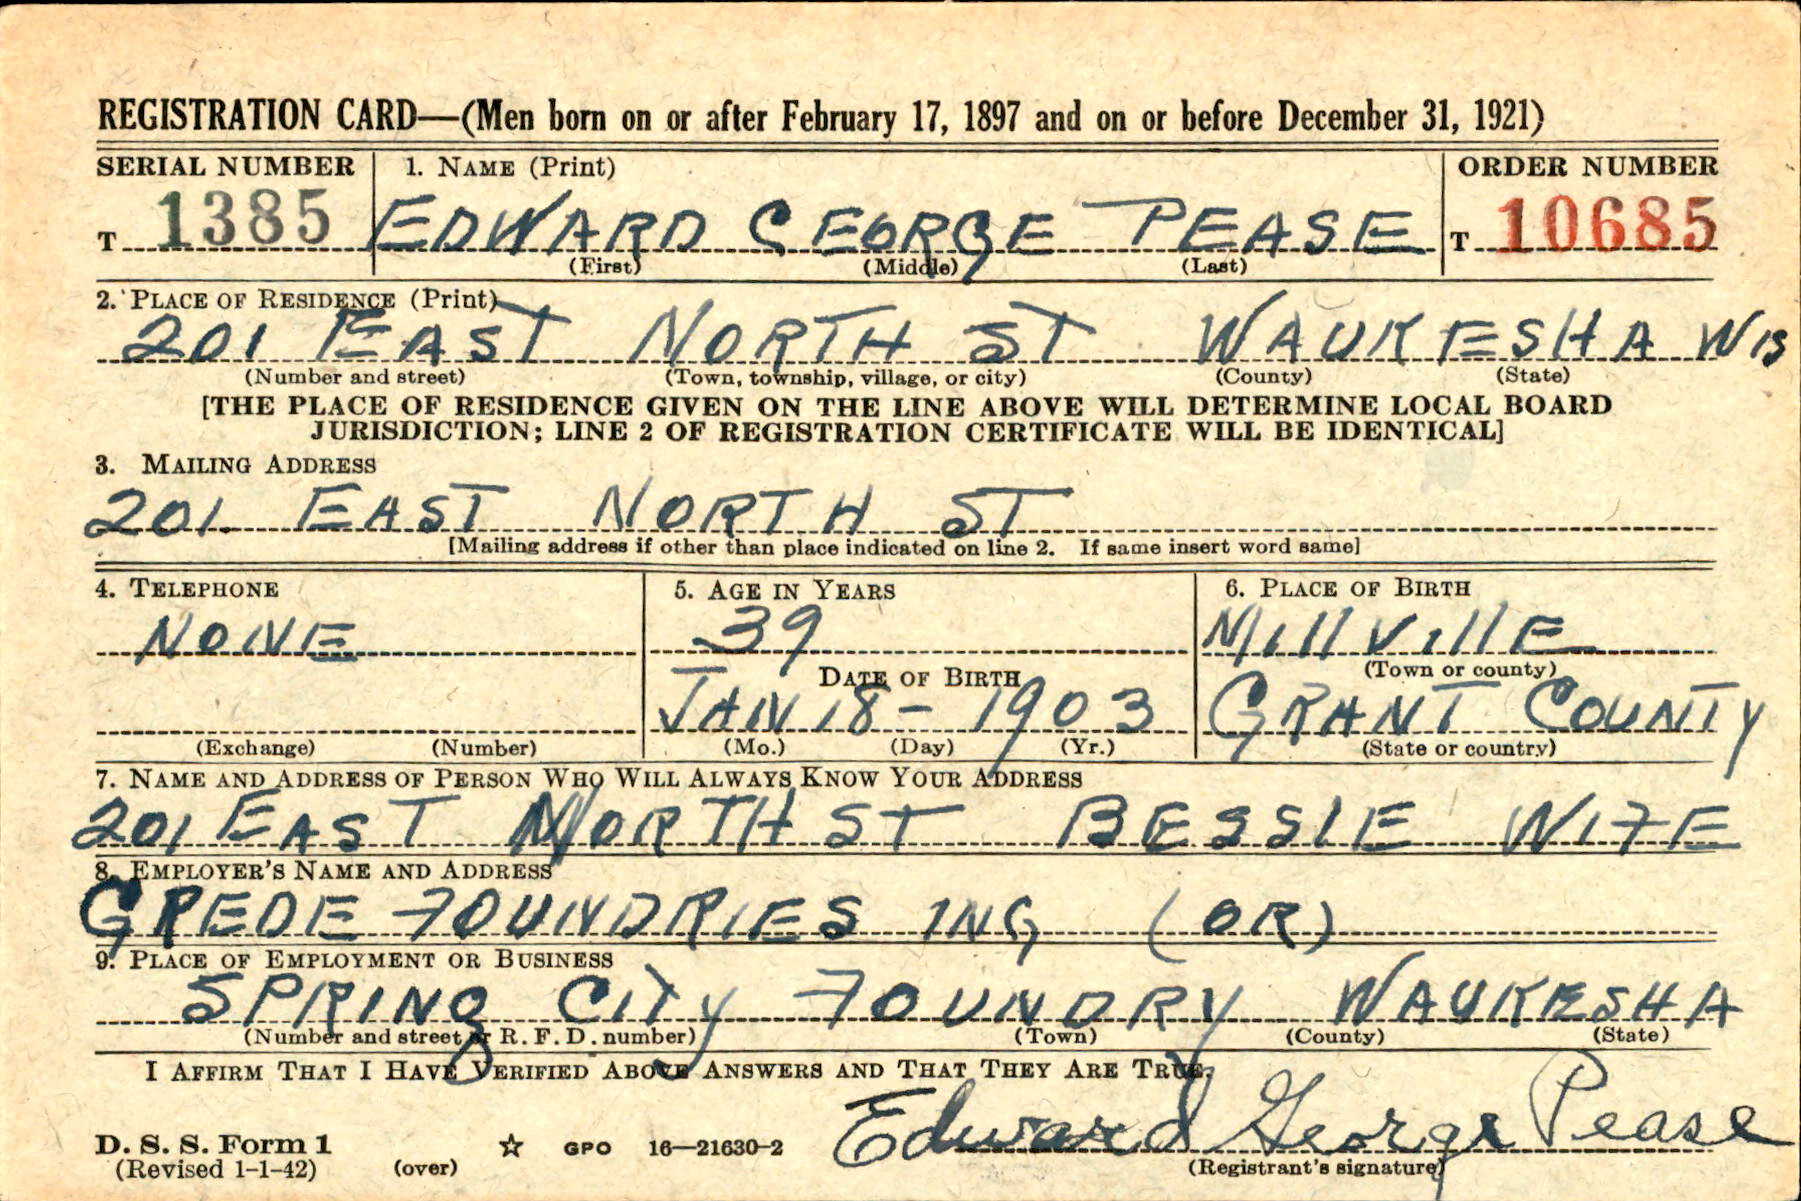 REGISTRATION CARD—(Men born on or after February 17, 1897 and on or before December 31, 1921)
SERIAL NUMBER 1. NAME (Print) ORDER NUMBER
T 1385 EDWARD GEORGE PEASE T 10685
(First) (Middle) (Last)
2. PLACE OF RESIDENCE (Print)
201 EAST NORTH ST WAUKESHA WIS
(Number and street) (Town, township, village, or city) (County) (State)
[THE PLACE OF RESIDENCE GIVEN ON THE LINE ABOVE WILL DETERMINE LOCAL BOARD
JURISDICTION; LINE 2 OF REGISTRATION CERTIFICATE WILL BE IDENTICAL]
3. MAILING ADDRESS
201 EAST NORTH ST
[Mailing address if other than place indicated on line 2. If same insert word same]
4. TELEPHONE 5. AGE IN YEARS 6. PLACE OF BIRTH
NONE 39 MillVillE
DATE OF BIRTH (Town or county)
JAN 18 - 1903 GRANT COUNTY
(Exchange) (Number) (Mo.) (Day) (Yr.) (State or country)
7. NAME AND ADDRESS OF PERSON WHO WILL ALWAYS KNOW YOUR ADDRESS
201 EAST NORTH ST BESSIE WIFE
8. EMPLOYER'S NAME AND ADDRESS
GREDE FOUNDRIES ING (OR)
9. PLACE OF EMPLOYMENT OR BUSINESS
SPRING CITY FOUNDRY WAUKESHA
(Number and street or R. F. D. number) (Town) (County) (State)
I AFFIRM THAT I HAVE VERIFIED ABOVE ANSWERS AND THAT THEY ARE TRUE.
Edward George Pease
D. S. S. Form 1 ☆ GPO 16—21630-2
(Revised 1-1-42) (over) (Registrant's signature)